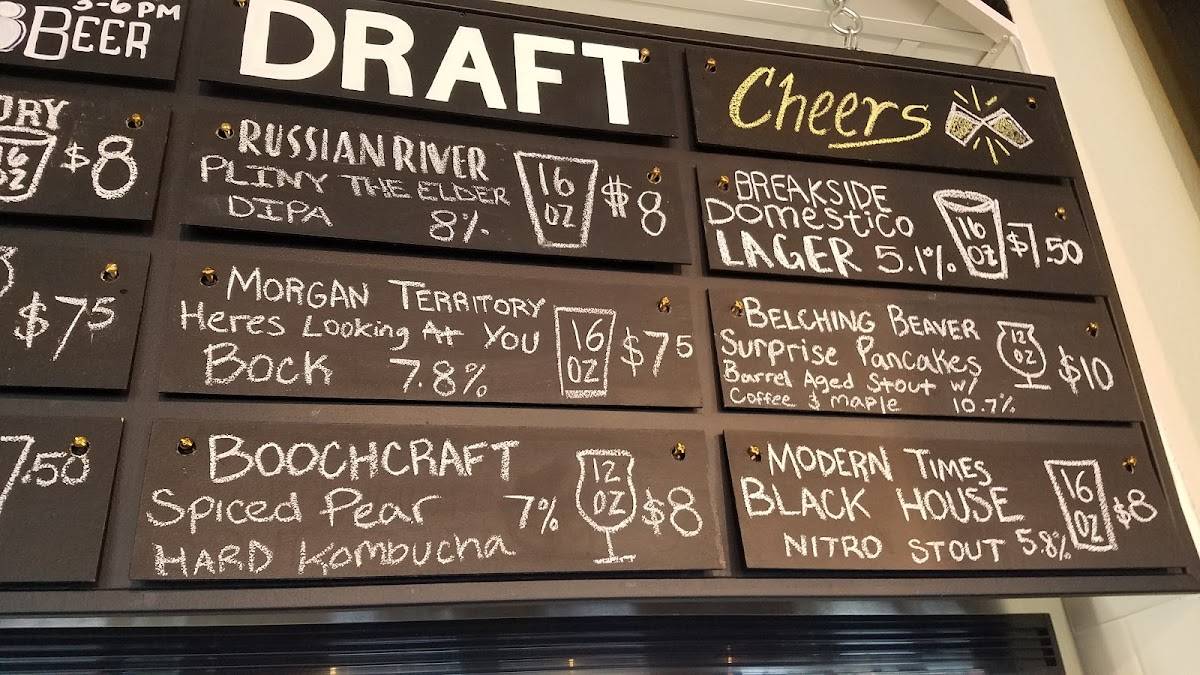 3-6 PM
BEER
$8
$75
7.50
DRAFT
RUSSIAN RIVER
PLINY THE ELDER
DIPA 8%
16
OZ
$8
MORGAN TERRITORY
Heres Looking At YOU
BOCK 7.8%
16
OZ
$75
BOOCHCRAFT
Spiced Pear 7%
HARD Kombucha
12
OZ
$8
Cheers
BREAKSIDE
Domestico
LAGER 5.1%
16
OZ
$7.50
BELCHING BEAVER
Surprise Pancakes
Barrel Aged Stout w/
Coffee & maple 10.7%
12
OZ
$10
MODERN TIMES
BLACK HOUSE
NITRO STOUT 5.8%
16
OZ
$8